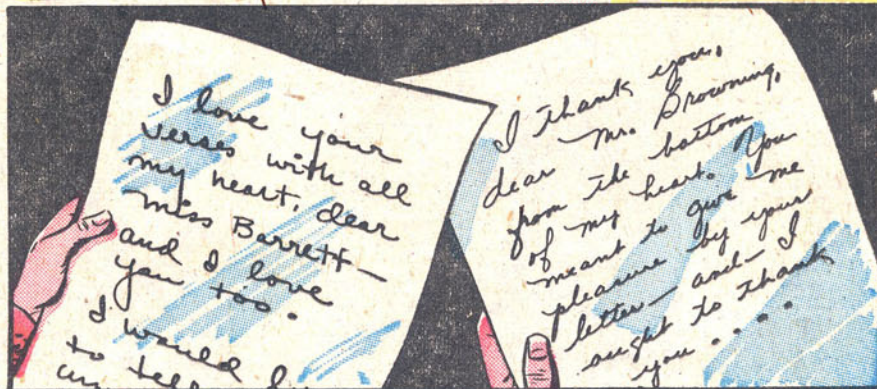 I love your
verses with all
my heart, dear
Miss Barrett—
and I love
you too.
I would
to tell
I thank you,
dear Mr. Browning,
from the bottom
of my heart. You
meant to give me
pleasure by your
letter—and—I
ought to thank
you....